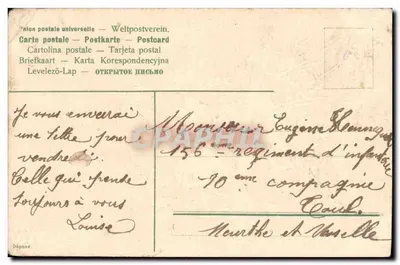 Union postale universelle — Weltpostverein.
Carte postale — Postkarte — Postcard
Cartolina postale — Tarjeta postal
Briefkaart — Karta Korespondencyjna
Levelező-Lap — ОТКРЫТОЕ ПИСЬМО
Je vous enverai
une lettre pour
vendredi
Celle qui pense
toujours à vous
Louise
Monsieur Eugène
156 eme régiment d'infanterie
10 eme compagnie
Toul
Meurthe et Moselle
Déposé